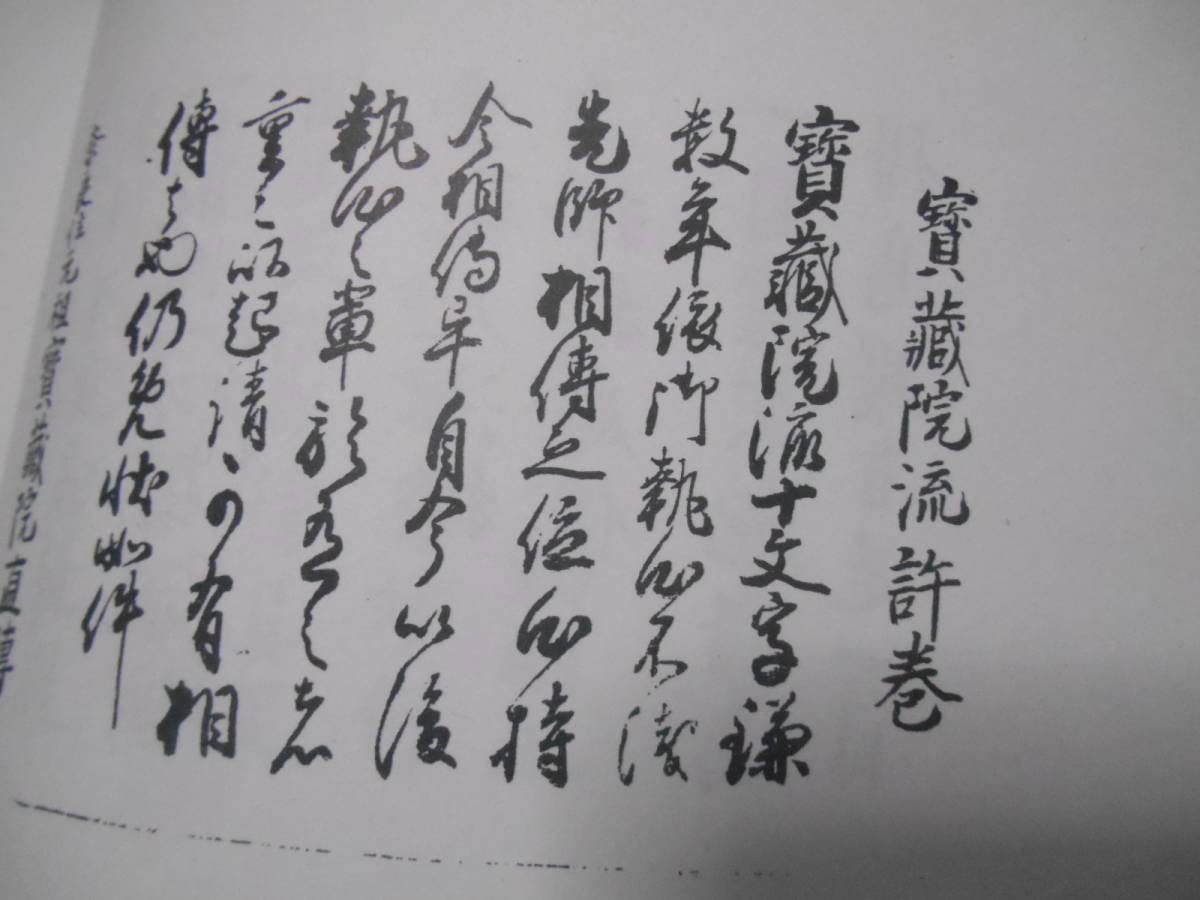 寶藏院流許巻
寶藏院流十文字鎌
数年依御執心不浅
先師相傳之位心持
今相傳畢自今以後
執心之輩於有之者
重々以起請可有相
傳者也仍免状如件
寶藏院